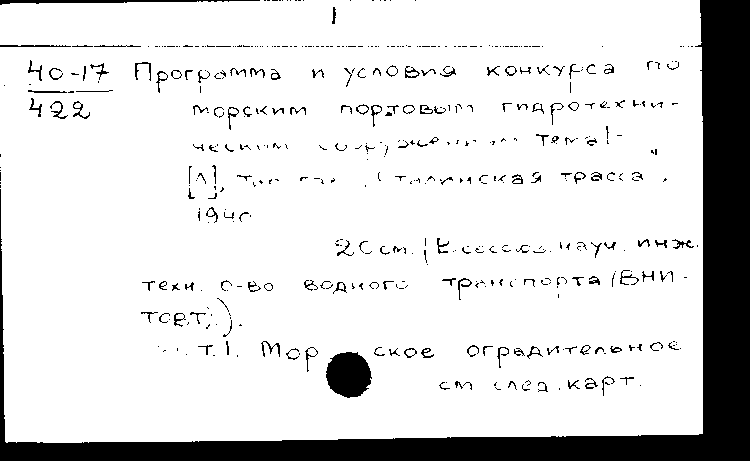 1
40-17 Программа и условия конкурса по
422 морским портовым гидротехни-
ческим сооружениям Тема 1-
[Л], тип. "Сталинская трасса",
1940
20 см. (Всесоюз. науч. инж.
техн. о-во водного транспорта (ВНИ-
ТОВТ)).
Т.1. Морское оградительное
см след. карт.